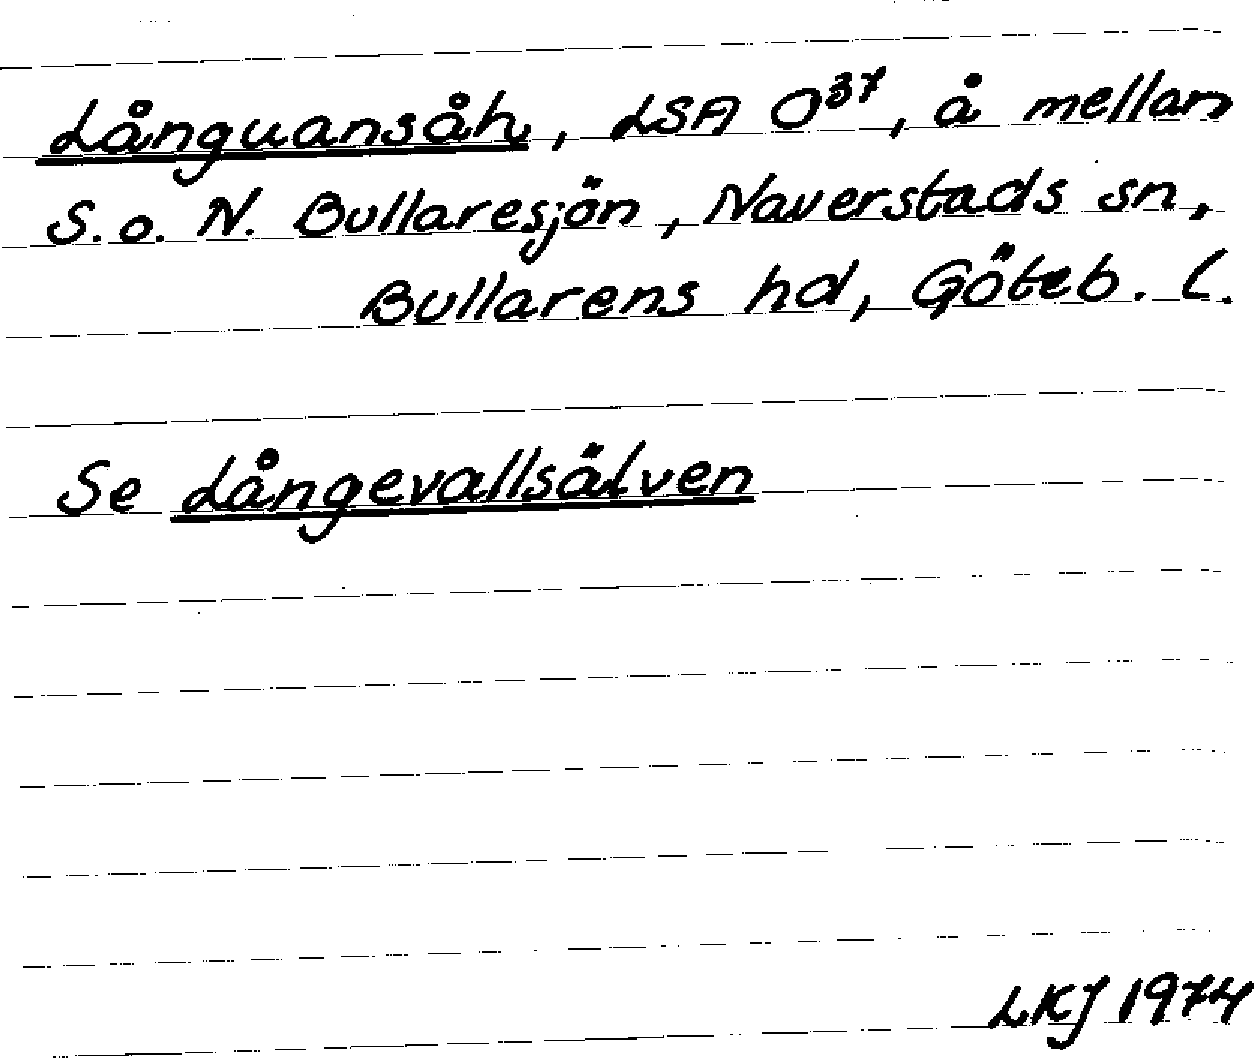 Långuansåh, LSA O37, å mellan
S. o. N. Bullaresjön, Naverstads sn,
Bullarens hd, Göteb. l.
Se Långevallsälven
LKJ 1974